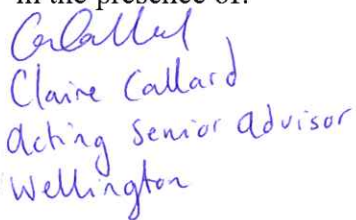 in the presence of:
Claire Callard
Acting Senior Advisor
Wellington